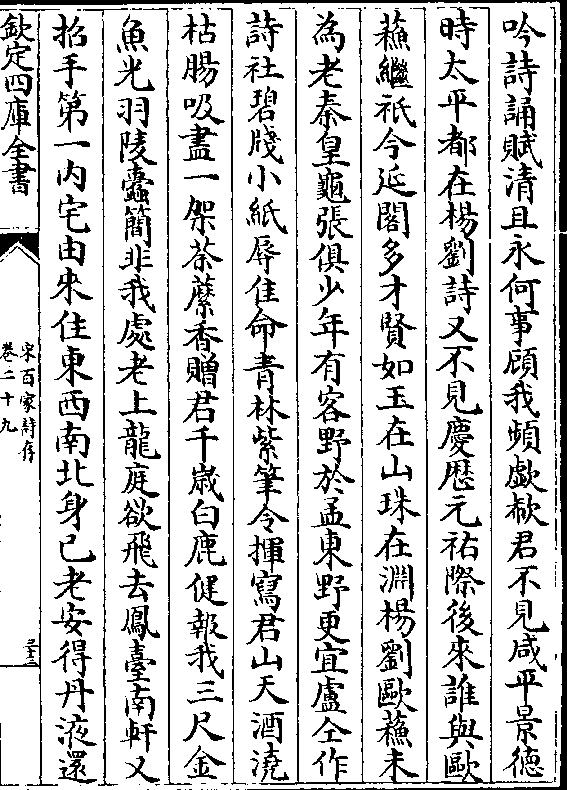 吟詩誦賦清且永何事顧我頻歔欷君不見咸平景德
時太平都在楊劉詩又不見慶歷元祐際後來誰與歐
蘓繼祇今延閣多才賢如玉在山珠在淵楊劉歐蘓未
為老秦皇龜張俱少年有客野於孟東野更宜盧仝作
詩社碧牋小紙辱佳命青林紫筆令揮寫君山天酒澆
枯腸吸盡一架荼蘼香贈君千嵗白鹿健報我三尺金
魚光羽陵蠧簡非我處老上龍庭欲飛去鳳臺南軒又
招手第一内宅由來住東西南北身已老安得丹液還
欽定四庫全書
宋百家詩存
卷二十九